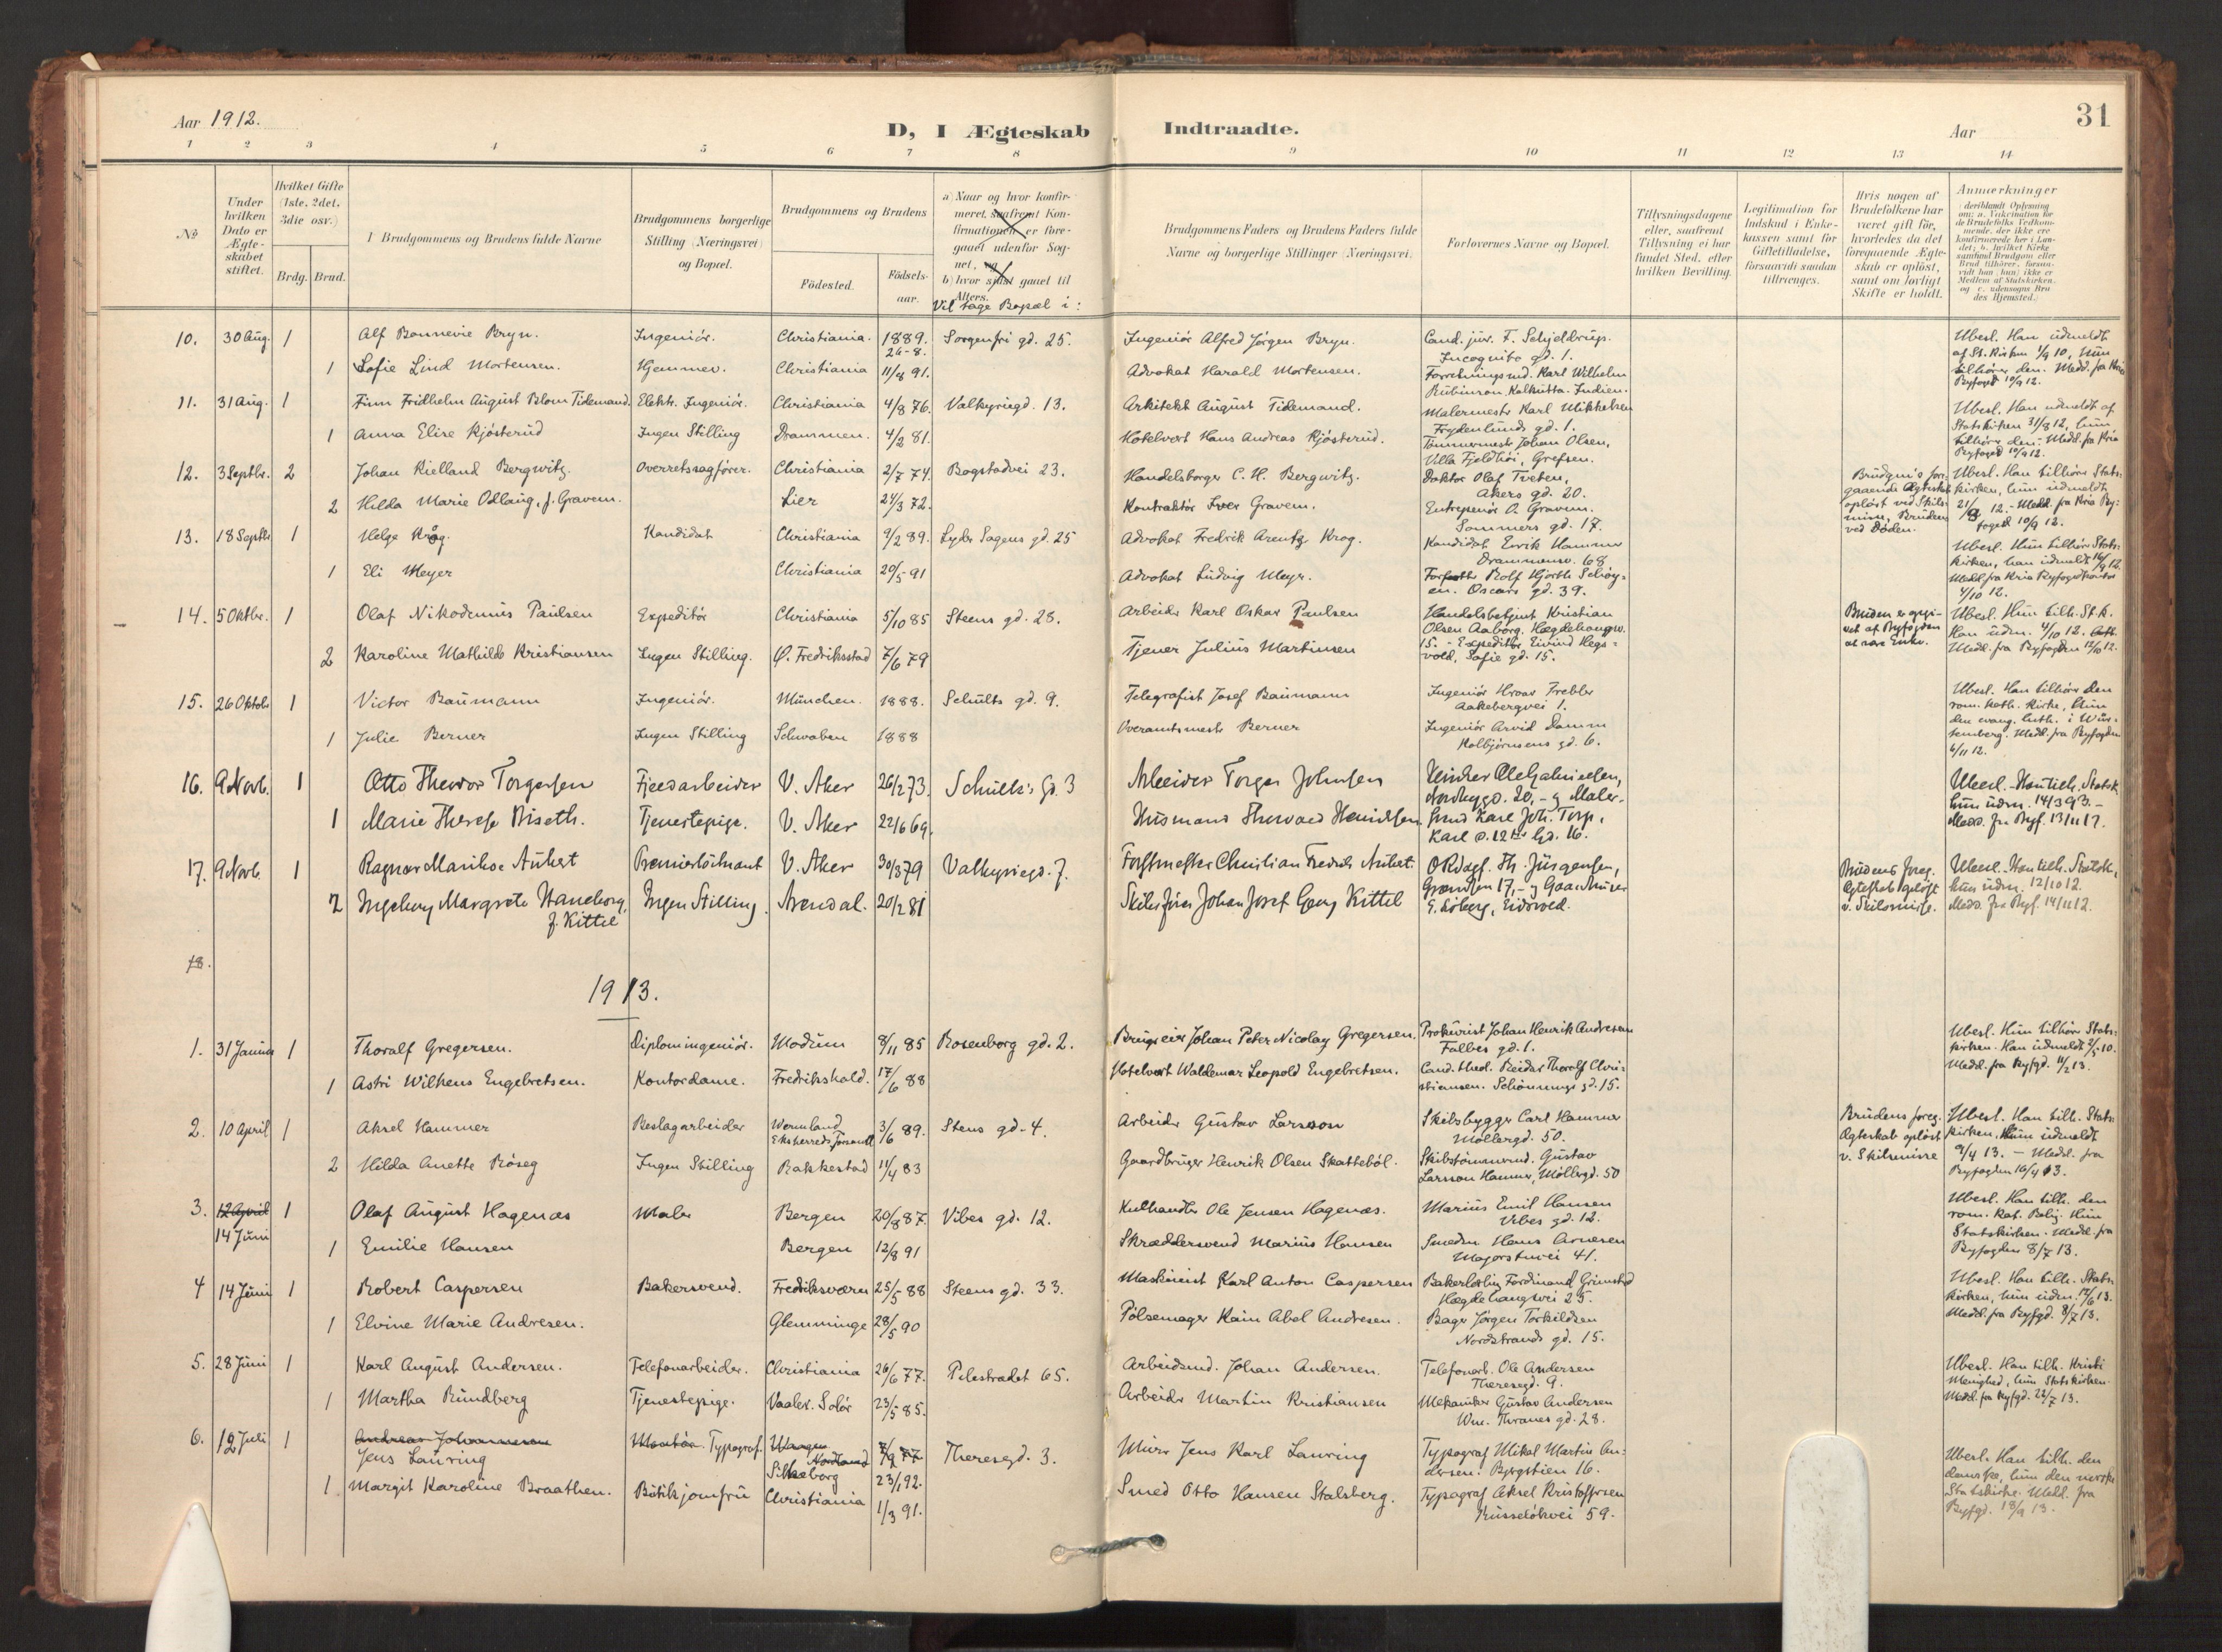 Aar 1912.
D, I Ægteskab Indtraadte.
Aar
31
1 2 3 4 5 6 7 8 9 10 11 12 13 14
№
Under hvilken Dato er Ægteskabet stiftet.
Hvilket Gifte (1ste, 2det, 3die osv.)
Brdg. Brud.
I Brudgommens og Brudens fulde Navne
Brudgommens borgerlige Stilling (Næringsvei) og Bopæl.
Brudgommens og Brudens
Födested.
Födselsaar.
a) Naar og hvor konfirmeret, saafremt Konfirmationen er foregaaet udenfor Sognet, og
b) hvor sidst gaaet til Alters.
Vil tage Bopæl i:
Brudgommens Faders og Brudens Faders fulde Navne og borgerlige Stillinger (Næringsvei).
Forlovernes Navne og Bopæl.
Tillysningsdagene eller, saafremt Tillysning ei har fundet Sted, efter hvilken Bevilling.
Legitimation for Indskud i Enkekassen samt for Giftetilladelse, forsaavidt saadan tiltrænges.
Hvis nogen af Brudefolkene har været gift för, hvorledes da det foregaaende Ægteskab er oplöst, samt om lovligt Skifte er holdt.
Anmærkninger (deriblandt Oplysning om: a. Vakcination for de Brudefolks Vedkommende, der ikke ere konfirmerede her i Landet; b. hvilket Kirkesamfund Brudgom eller Brud tilhörer, forsaavidt han (hun) ikke er Medlem af Statskirken, og c. udensogns Brudes Hjemsted.)
10. 30 Aug. 1 Alf Bonnevie Bryn. Ingeniör. Christiania. 1889. 26-8. Sorgenfri gd. 25. Ingeniör Alfred Jörgen Bryn. Cand. jur. F. Schjeldrup. Incognito gd. 1.
Ubesl. Han udmeldt af St. Kirken 1/9 10, hun tilhörer den. Medd. fra Kria Byfoged 10/9 12.
1 Sofie Lind Mortensen. Hjemmev. Christiania 11/8 91. Advokat Harald Mortensen. Forretningsmd. Karl Wilhelm Rubinson Kalkutta. Indien.
11. 31 Aug. 1 Finn Fridhelm August Blom Tidemand. Elektr. Ingeniör. Christiania 4/8 76. Valkyriegd. 13. Arkitekt August Tidemand. Malermester Karl Mikkelsen Frydenlunds gd. 1.
Ubesl. Han udmeldt af Statskirken 31/8 12, hun tilhörer den. Medd. fra Kria Byfoged 10/9 12.
1 Anna Elise Kjösterud Ingen Stilling Drammen. 4/2 81. Hotelvert Hans Andreas Kjösterud. Tömmermester Johan Olsen, Villa Fjeldhöi, Grefsen.
12. 3 Septbr. 2 Johan Kielland Bergwitz. Overretssagförer. Christiania 2/7 74. Bogstadvei 23. Handelsborger C. H. Bergwitz. Doktor Olaf Tveten, Akers gd. 20.
Brudgms foregaaende Ægteskab oplöst ved Skilsmisse, Brudens ved Döden.
Ubesl. Han tilhörer Statskirken, hun udmeldt 21/8 12. - Medd. fra Kria Byfoged 10/9 12.
2 Hilda Marie Odlaug, f. Gravem. Lier 24/3 72. Kontraktör Iver Gravem. Entreprenör O. Gravem. Sommers gd. 17.
13. 18 Septbr 1 Helge Krog. Kandidat Christiania 9/2 89. Lyder Sagens gd. 25 Advokat Fredrik Arentz Krog. Kandidat Eirik Hammer Drammensv. 68
Ubesl. Hun tilhörer Statskirken, han udmeldt 16/9 12. Medd. fra Kria Byfogedkontor 4/10 12.
1 Eli Meyer Christiania 20/5 91 Advokat Ludvig Meyer. Forfatter Rolf Hjorth Schöyen. Oscars gd. 39.
14. 5 Oktbr. 1 Olaf Nikodemus Paulsen Expeditör Christiania 5/10 85 Steens gd. 28. Arbeider Karl Oskar Paulsen Handelsbetjent Kristian Olsen Aaborg. Hægdehaugsv. 15. - Expeditör Eivind Hegsvold, Sofie gd. 15.
Bruden er opgivet af Byfogden at være Enke.
Ubesl. Hun tilh. St. K. Han udm. 4/10 12. Medd. fra Byfogden 12/10 12.
2 Karoline Mathilde Kristiansen Ingen Stilling. Ö. Fredriksstad 7/6 79 Tjener Julius Martinsen
15. 26 Oktob 1 Victor Baumann Ingeniör. München. 1888. Schults gd. 9. Telegrafist Josef Baumann Ingeniör Hroar Trebler Aakebergvei 1.
Ubesl. Han tilhörer den rom. kath. Kirke, hun den evang. luth. i Würtemberg. Medd. fra Byfogden 6/11 12.
1 Julie Berner Ingen Stilling Schwaben 1888 Overamtsmester Berner Ingeniör Arvid Damm Kolbjörnsens gd. 6.
16. 9 Novb. 1 Otto Theodor Torgersen Fjeldarbeider V. Aker 26/2 73. Schultz's Gd. 3 Arbeider Torger Johnsen
Ubesl. - Han tilh. Statsk. hun udm. 14/3 93. - Medd. fra Byf. 13/11 12.
1 Marie Therese Riseth. Tjenestepige. V. Aker 22/6 69. Husmand Thorvald Henriksen Karl d. 12tes Gd. 16.
17. 9 Novb. 1 Ragnar Marikse Aubert Premierlöitnant V. Aker 30/3 79 Valkyriegd. 7. Forstmester Christian Fredrik Aubert ORsagf. Th. Jürgensen, Grændsen 17,
Brudens foreg. Ægteskab oplöst v. Skilsmisse.
Ubesl. Han tilh. Statsk., hun udm. 12/10 12. Medd. fra Byf. 14/11 12.
2 Ingeborg Margrete Haneborg, f. Kittel Ingen Stilling. Arendal. 20/2 81 Skibsförer Johan Josef Georg Kittel Eidsvold.
18.
1913.
1. 31 Januar 1 Thoralf Gregersen. Diplomingeniör. Modum 8/11 85 Rosenborg gd. 2. Brugseier Johan Peter Nicolay Gregersen. Prokurist Johan Henrik Andresen Falbes gd. 1.
Ubesl. Hun tilhörer Statskirken. Han udmeldt 2/5 10. Medd. fra Byfgd. 11/2 13.
1 Astri Wilhens Engebretsen. Kontordame. Fredrikshald. 17/6 88 Hotelvert Waldemar Leopold Engebretsen. Cand. theol. Reidar Thorolf Christiansen. Schönnings gd. 15.
2. 10 April 1 Aksel Hammer Beslagarbeider Wermland Ekshereds Forsaml. 3/6 89. Stens gd. 4. Arbeider Gustav Larsson Skibsbygger Carl Hammer Möllergd. 50.
Brudens foreg. Ægteskab oplöst v. Skilsmisse
Ubesl. Han tilh. Statskirken. Hun udmeldt 9/4 13. - Medd. fra Byfogden 16/4 13.
2 Hilda Anette Röseg Ingen Stilling Rakkestad 11/4 83 Gaardbruger Henrik Olsen Skatteböl. Skibstömmermd. Gustav Larsson Hammer, Möllergd. 50
3. 12 April 14 Juni 1 Olaf August Hagenæs Maler Bergen 20/8 87. Vibes gd. 12. Kulhandler Ole Jensen Hagenæs. Marius Emil Hansen Vibes gd. 12.
Ubesl. Han tilh. den rom. kat. Relig. Hun Statskirken. Medd. fra Byfogden 8/7 13.
1 Emilie Hansen Bergen 12/8 91 Skræddersvend Marius Hansen Smeden Hans Arnesen Majorstuvei 41.
4 14 Juni 1 Robert Caspersen Bakersvend. Fredriksværn 25/5 88 Steens gd. 33. Maskinist Karl Anton Caspersen Ferdinand Grimstad Hægdehaugsvei 25.
Ubesl. Han tilh. Statskirken, hun udm. 12/6 13. Medd. fra Byfgd. 8/7 13.
1 Elvine Marie Andresen. Glemminge 28/5 90 Pölsemager Kain Abel Andresen. Bager Jörgen Torkildsen Nordstrands gd. 15.
5. 28 Juni 1 Karl August Andersen. Telefonarbeider. Christiania 26/6 77. Pilestrædet 65. Arbeidsmd. Johan Andersen. Telefonarb. Ole Andersen Theresegd. 9.
Ubesl. Han tilh. Kristi Menighed, hun Statskirken. Medd. fra Byfgd. 22/7 13.
1 Martha Rundberg Tjenestepige. Vaaler. Solör 23/5 85. Arbeider Martin Kristiansen Mekaniker Gustav Andersen Wm. Thranes gd. 28.
6. 12 Juli 1 Andreas Johannesen Jens Lauring Montör. Typograf. Nordland Silkeborg 7/9 77 23/1 92. Theresegd. 3. Murer Jens Karl Lauring Typograf Mikal Martin Andersen. Bergstien 16.
Ubesl. Han tilh. den danske, hun den norske Statskirke. Medd. fra Byfgd. 18/9 13.
1 Margit Karoline Braathen. Butikjomfru Christiania 1/3 91. Smed Otto Hansen Stalsberg. Typograf Aksel Kristoffersen Russelökvei 59.